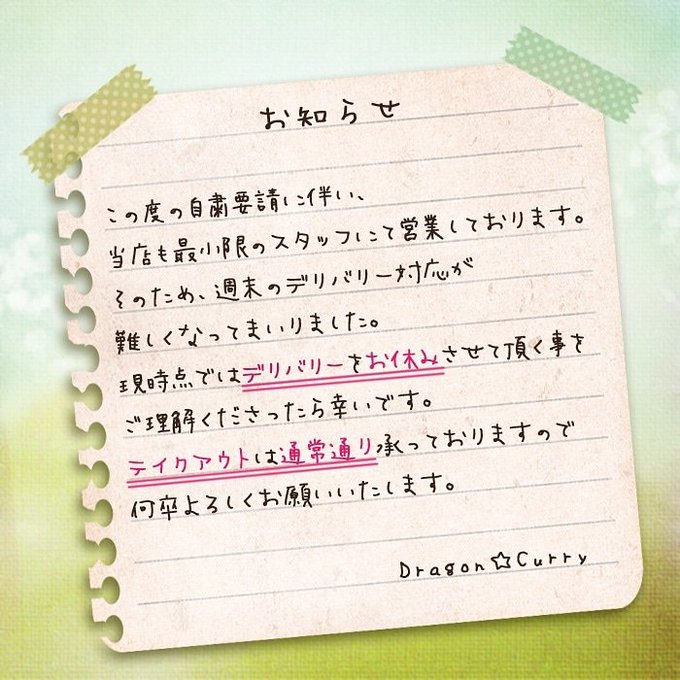 お知らせ
この度の自粛要請に伴い、
当店も最小限のスタッフにて営業しております。
そのため、週末のデリバリー対応が
難しくなってまいりました。
現時点ではデリバリーをお休みさせて頂く事を
ご理解くださったら幸いです。
テイクアウトは通常通り承っておりますので
何卒よろしくお願いいたします。
Dragon☆Curry